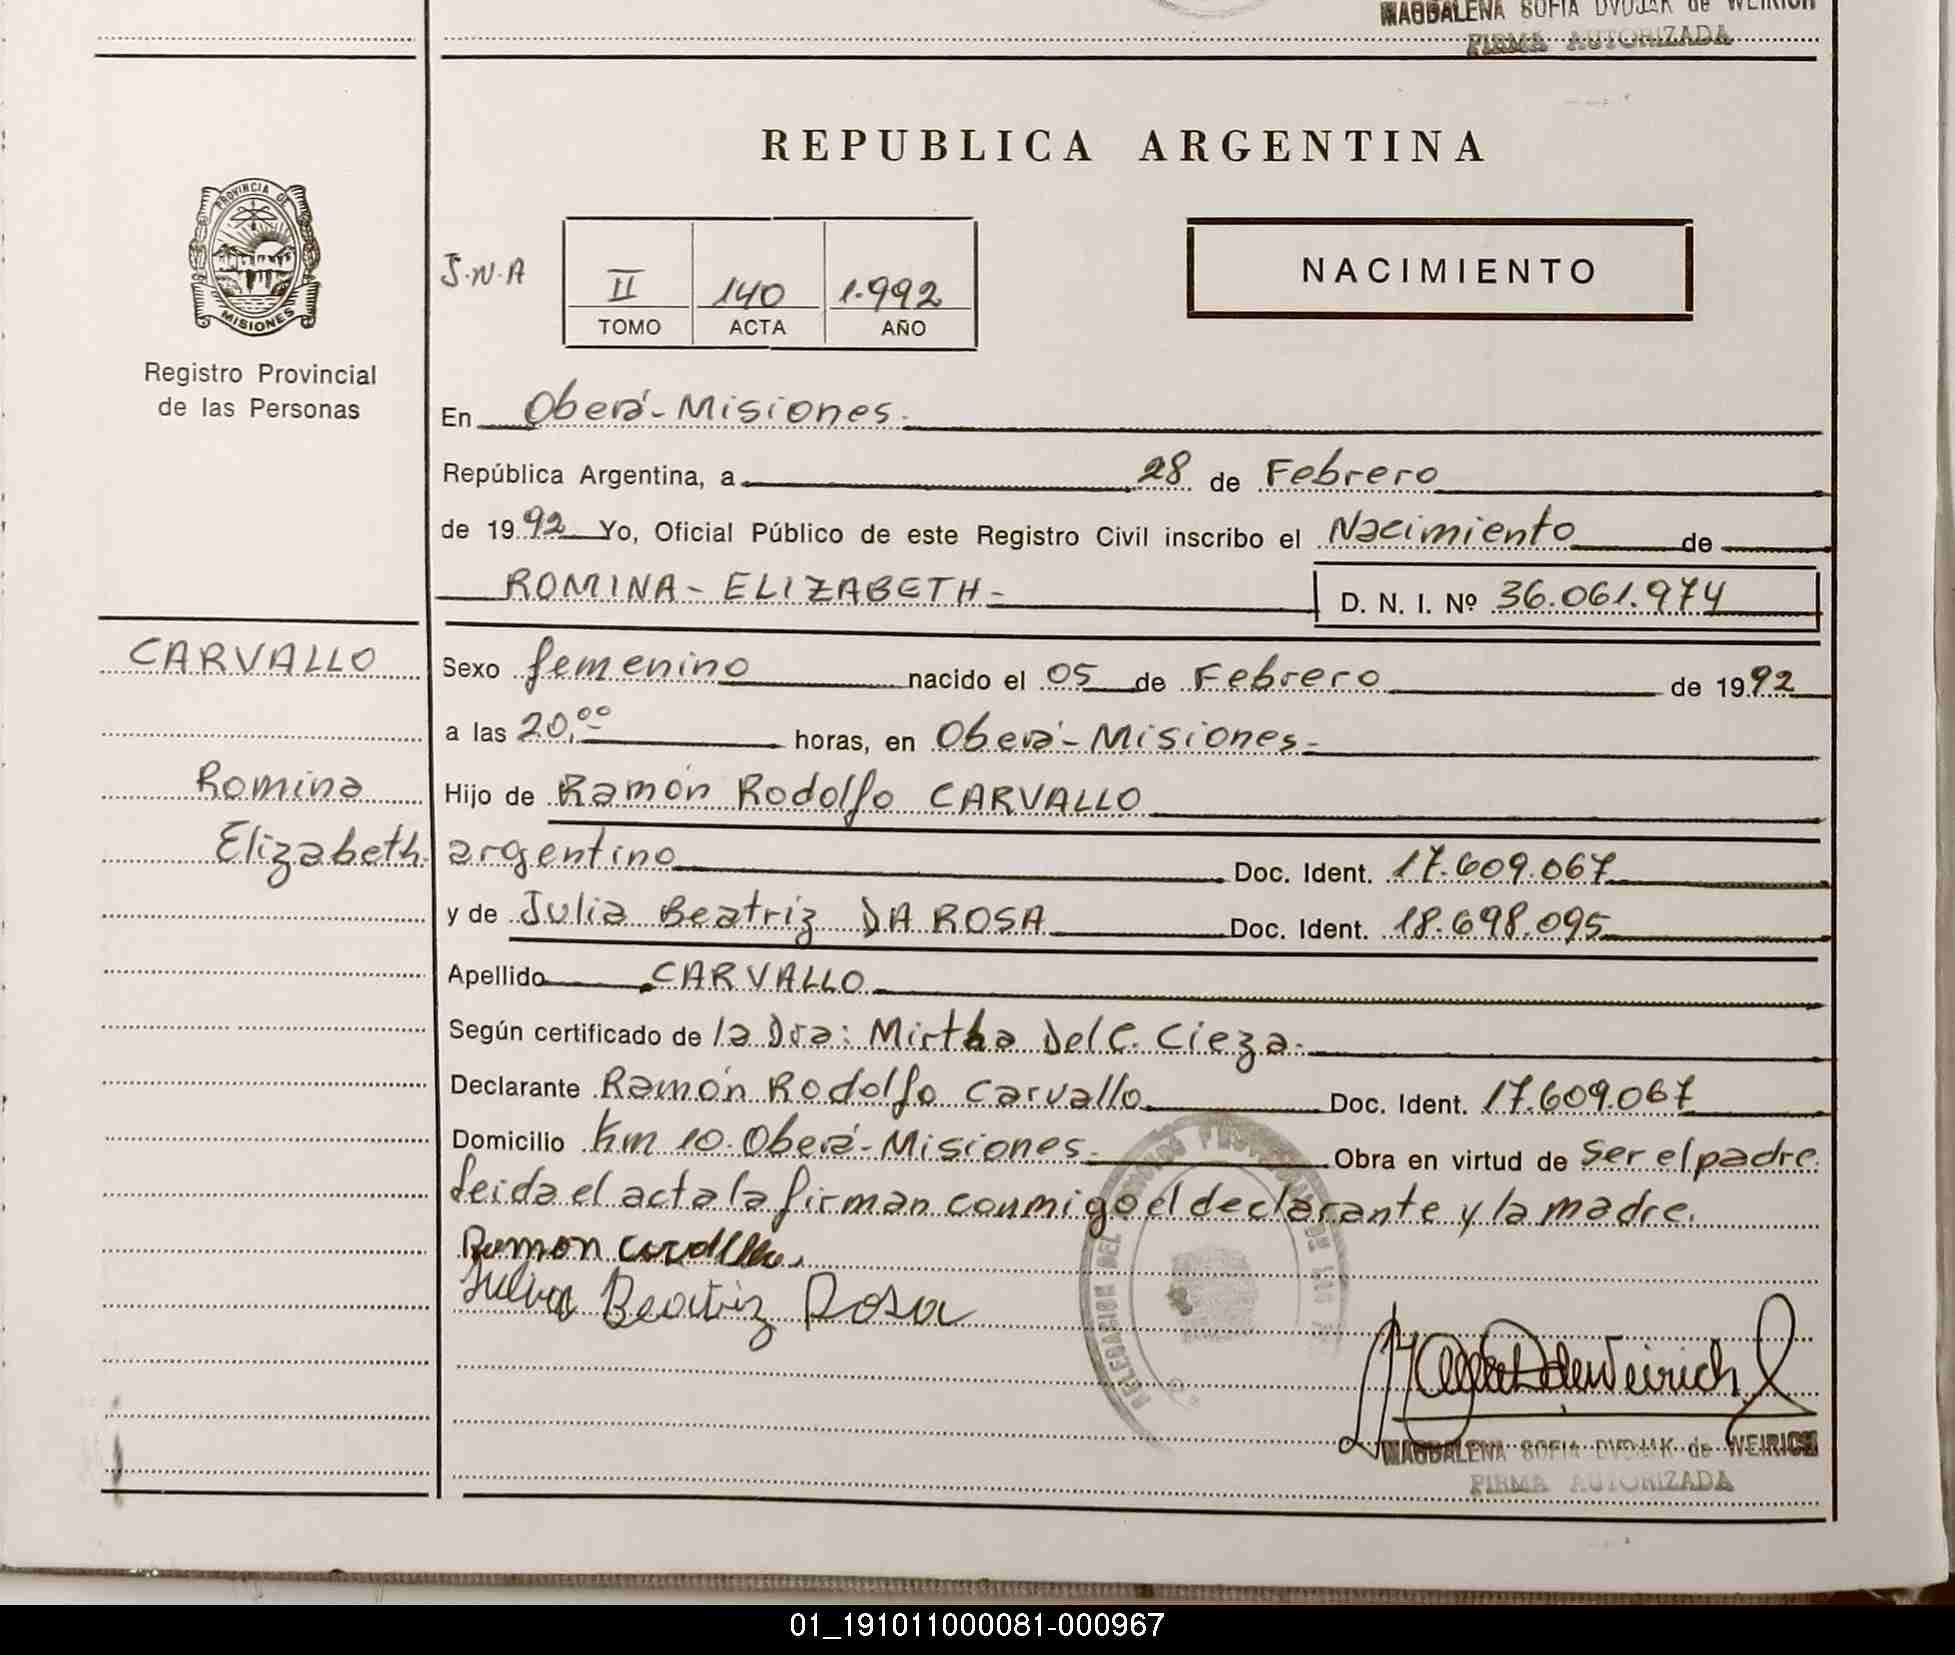 MAGDALENA SOFIA DVOJAK de WEIRICH
FIRMA AUTORIZADA
REPUBLICA ARGENTINA
PROVINCIA DE
MISIONES
Registro Provincial
de las Personas
J.N.A
II 140 1.992
TOMO ACTA AÑO
NACIMIENTO
En Oberá-Misiones.
República Argentina, a 28 de Febrero
de 1992 Yo, Oficial Público de este Registro Civil inscribo el Nacimiento de
ROMINA-ELIZABETH- D. N. I. Nº 36.061.974
CARVALLO
Romina
Elizabeth.
Sexo femenino nacido el 05 de Febrero de 1992
a las 20,00 horas, en Oberá-Misiones-
Hijo de Ramón Rodolfo CARVALLO
argentino Doc. Ident. 17.609.067
y de Julia Beatriz DA ROSA Doc. Ident. 18.698.095
Apellido CARVALLO
Según certificado de la Dra: Mirtha Del C. Cieza.
Declarante Ramón Rodolfo Carvallo Doc. Ident. 17.609.067
Domicilio Km 10. Oberá-Misiones. Obra en virtud de ser el padre.
Leida el acta la firman conmigo el declarante y la madre.
Ramon Carvallo.
Julia Beatriz Rosa
DELEGACION DEL
MAGDALENA SOFIA DVOJAK de WEIRICH
FIRMA AUTORIZADA
01_191011000081-000967